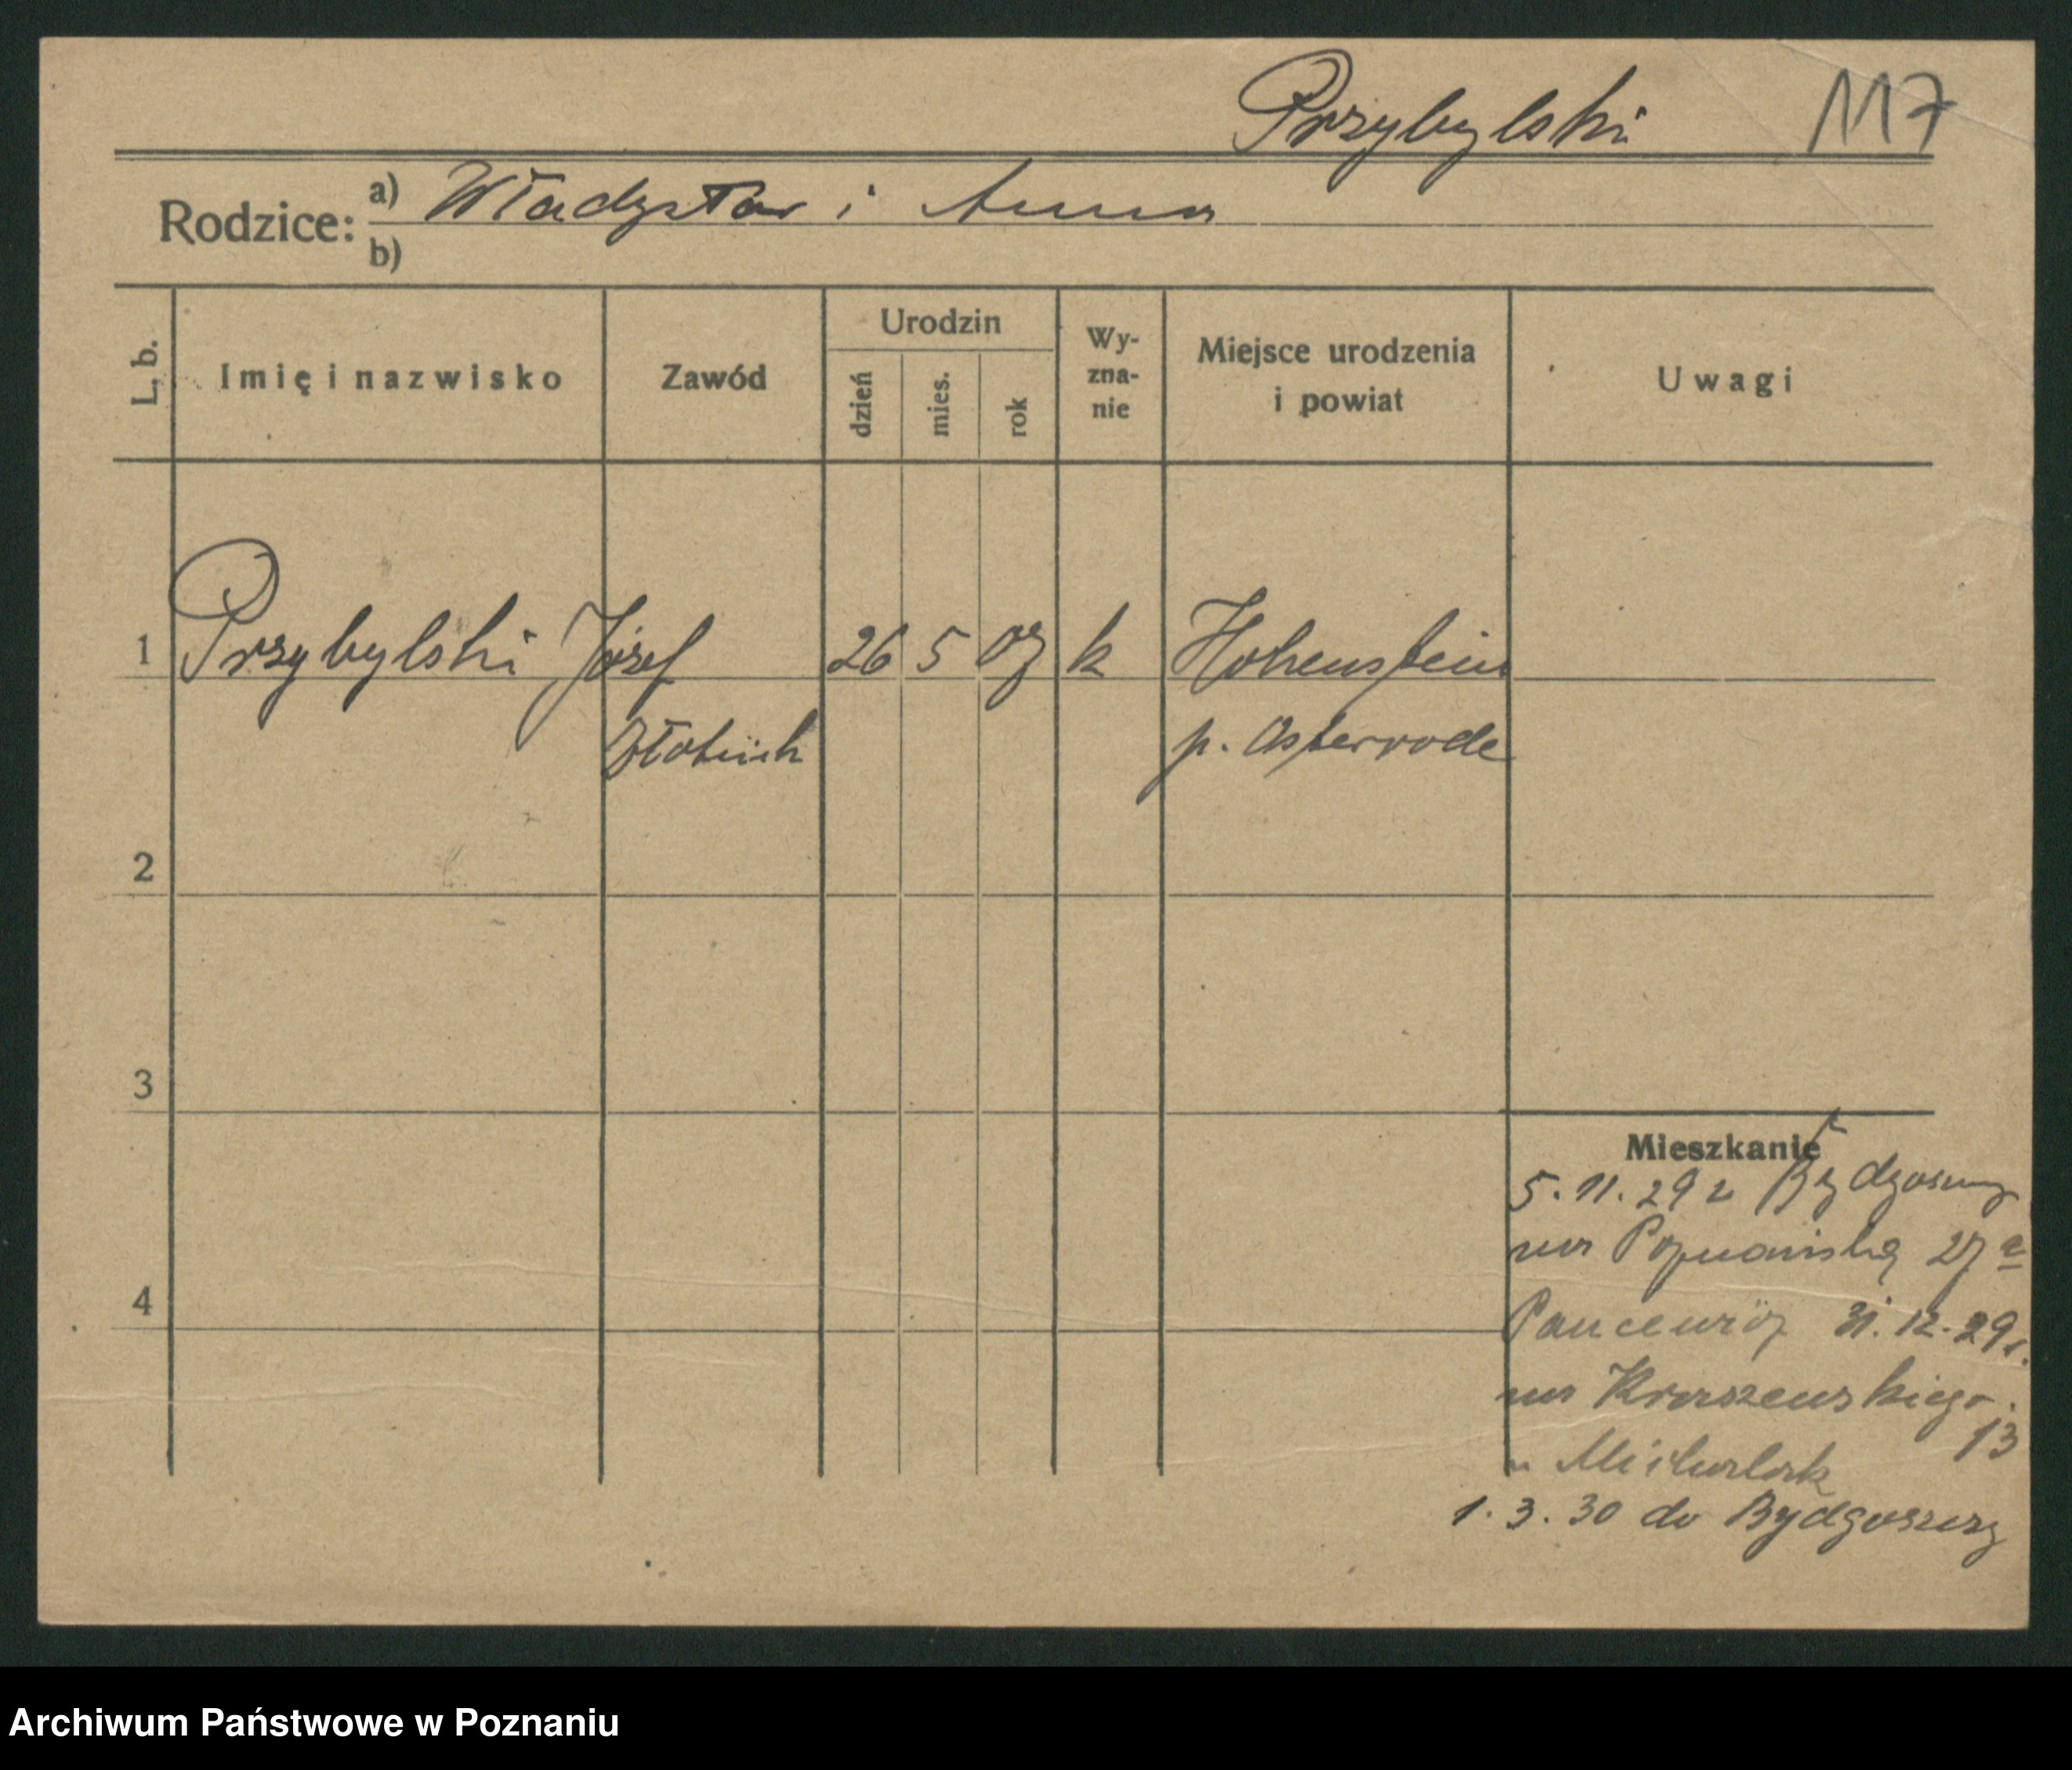 Przybylski 117
Rodzice: a) Władysław i Anna
b)
L. b. Imię i nazwisko Zawód Urodzin dzień mies. rok Wy-zna-nie Miejsce urodzenia i powiat Uwagi
1 Przybylski Józef 26 5 07 k Hohenstein
Złotnik p. Osterode
2
3
Mieszkanie
5.11.29 z Bydgoszczy
na Poznańską 27 a
4
31.12.29r.
na Kraszewskiego
13
u
1.3.30 do Bydgoszczy
Archiwum Państwowe w Poznaniu